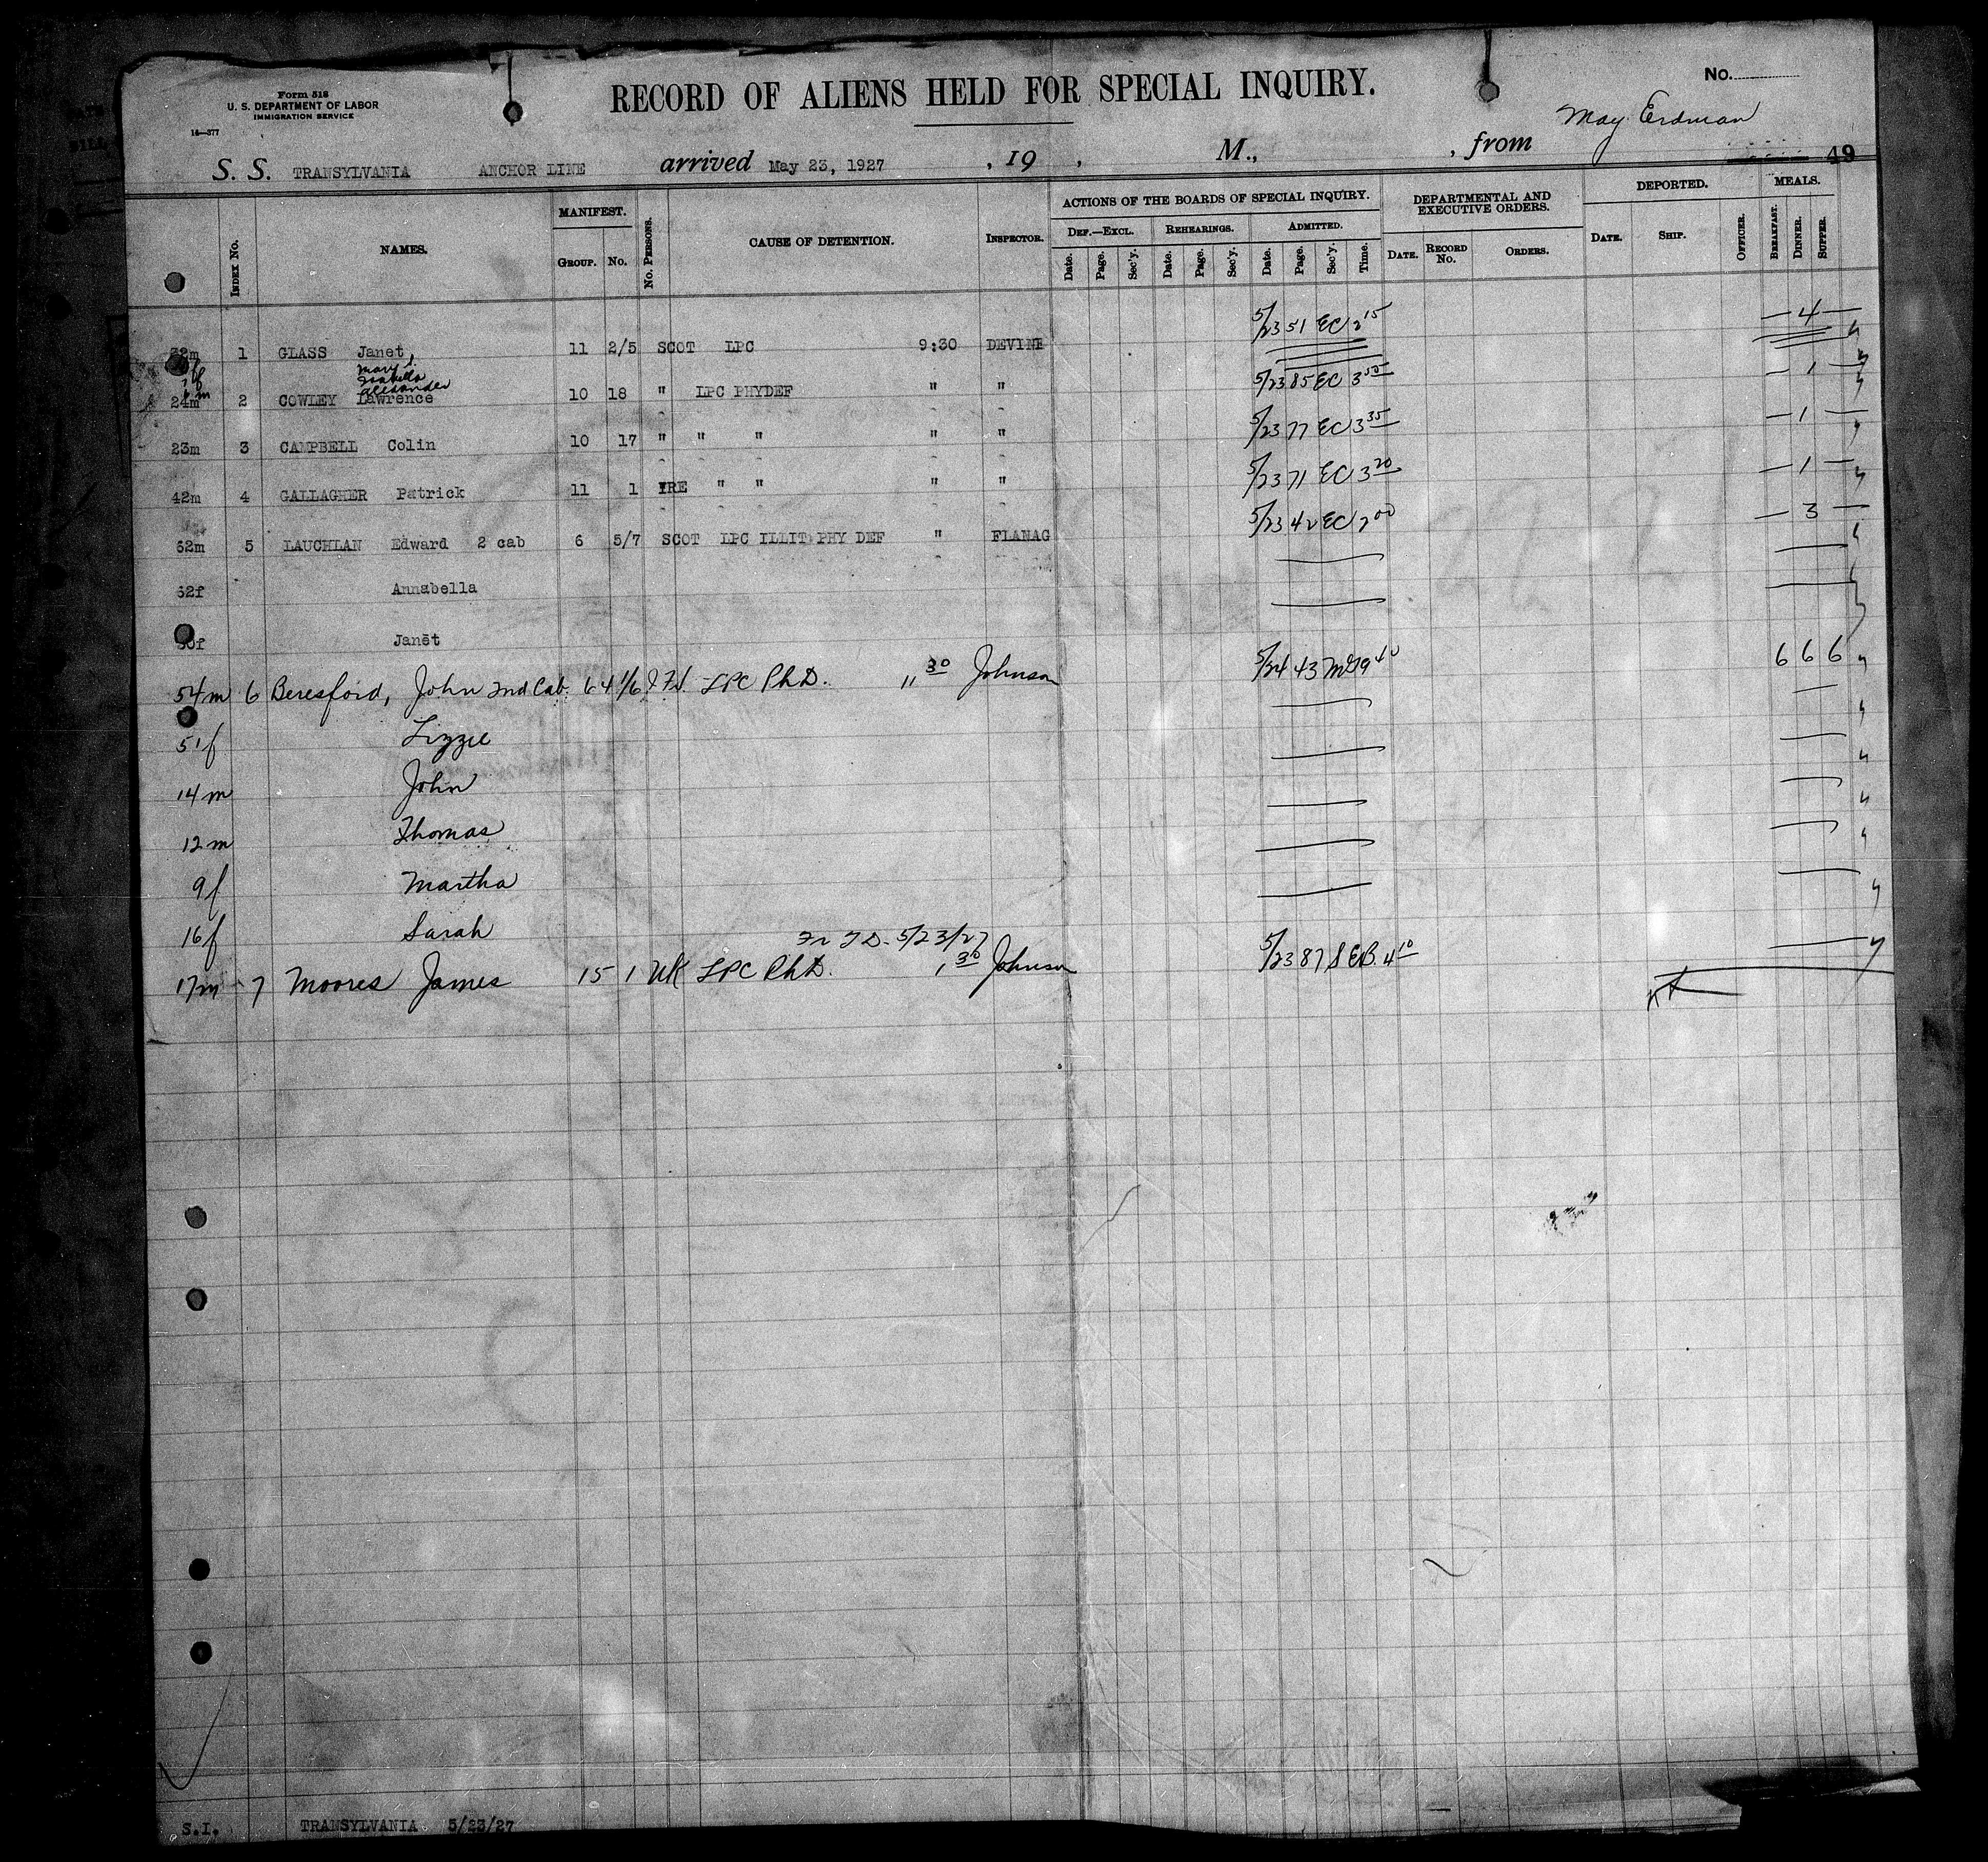 No.
Form 518
U. S. DEPARTMENT OF LABOR
IMMIGRATION SERVICE
14—377
RECORD OF ALIENS HELD FOR SPECIAL INQUIRY.
May Erdman
S. S. TRANSYLVANIA ANCHOR LINE arrived May 23, 1927 , 19 , M., , from 49
INDEX No. NAMES. MANIFEST. GROUP. No. No. PERSONS. CAUSE OF DETENTION. INSPECTOR. ACTIONS OF THE BOARDS OF SPECIAL INQUIRY. DEPARTMENTAL AND EXECUTIVE ORDERS. DEPORTED. MEALS.
DEF.—EXCL. REHEARINGS. ADMITTED.
Date. Page. Sec'y. Date. Page. Sec'y. Date. Page. Sec'y. Time. DATE. RECORD No. ORDERS. DATE. SHIP. OFFICER. BREAKFAST. DINNER. SUPPER.
1 GLASS Janet, 11 2/5 SCOT LPC 9:30 DEVINE 5/23 51 EC 2 15 — 4 —
Mary
Isabella
Alexander
24m 2 COWLEY Lawrence 10 18 " LPC PHYDEF " " 5/23 85 EC 3 50 — 1 —
23m 3 CAMPBELL Colin 10 17 " " " " " 5/23 77 EC 3 35 — 1 —
42m 4 GALLAGHER Patrick 11 1 IRE " " " " 5/23 71 EC 3 20 — 1 —
62m 5 LAUCHLAN Edward 2 cab 6 5/7 SCOT LPC ILLIT PHY DEF " FLANAG 5/23 42 EC 2 00 — 3 —
62f Annabella
Janet
54m 6 Beresford, John 2nd Cab. 64 1/6 LPC PhD. 11 30 Johnson 5/24 43 9 40 6 6 6
51f Lizzie
14m John
12m Thomas
9f Martha
16f Sarah
5/23/27
17m 7 Moores James 15 1 UK LPC PhD. 1 30 Johnson 5/23 87 SEB. 4 10
S.I. TRANSYLVANIA 5/23/27